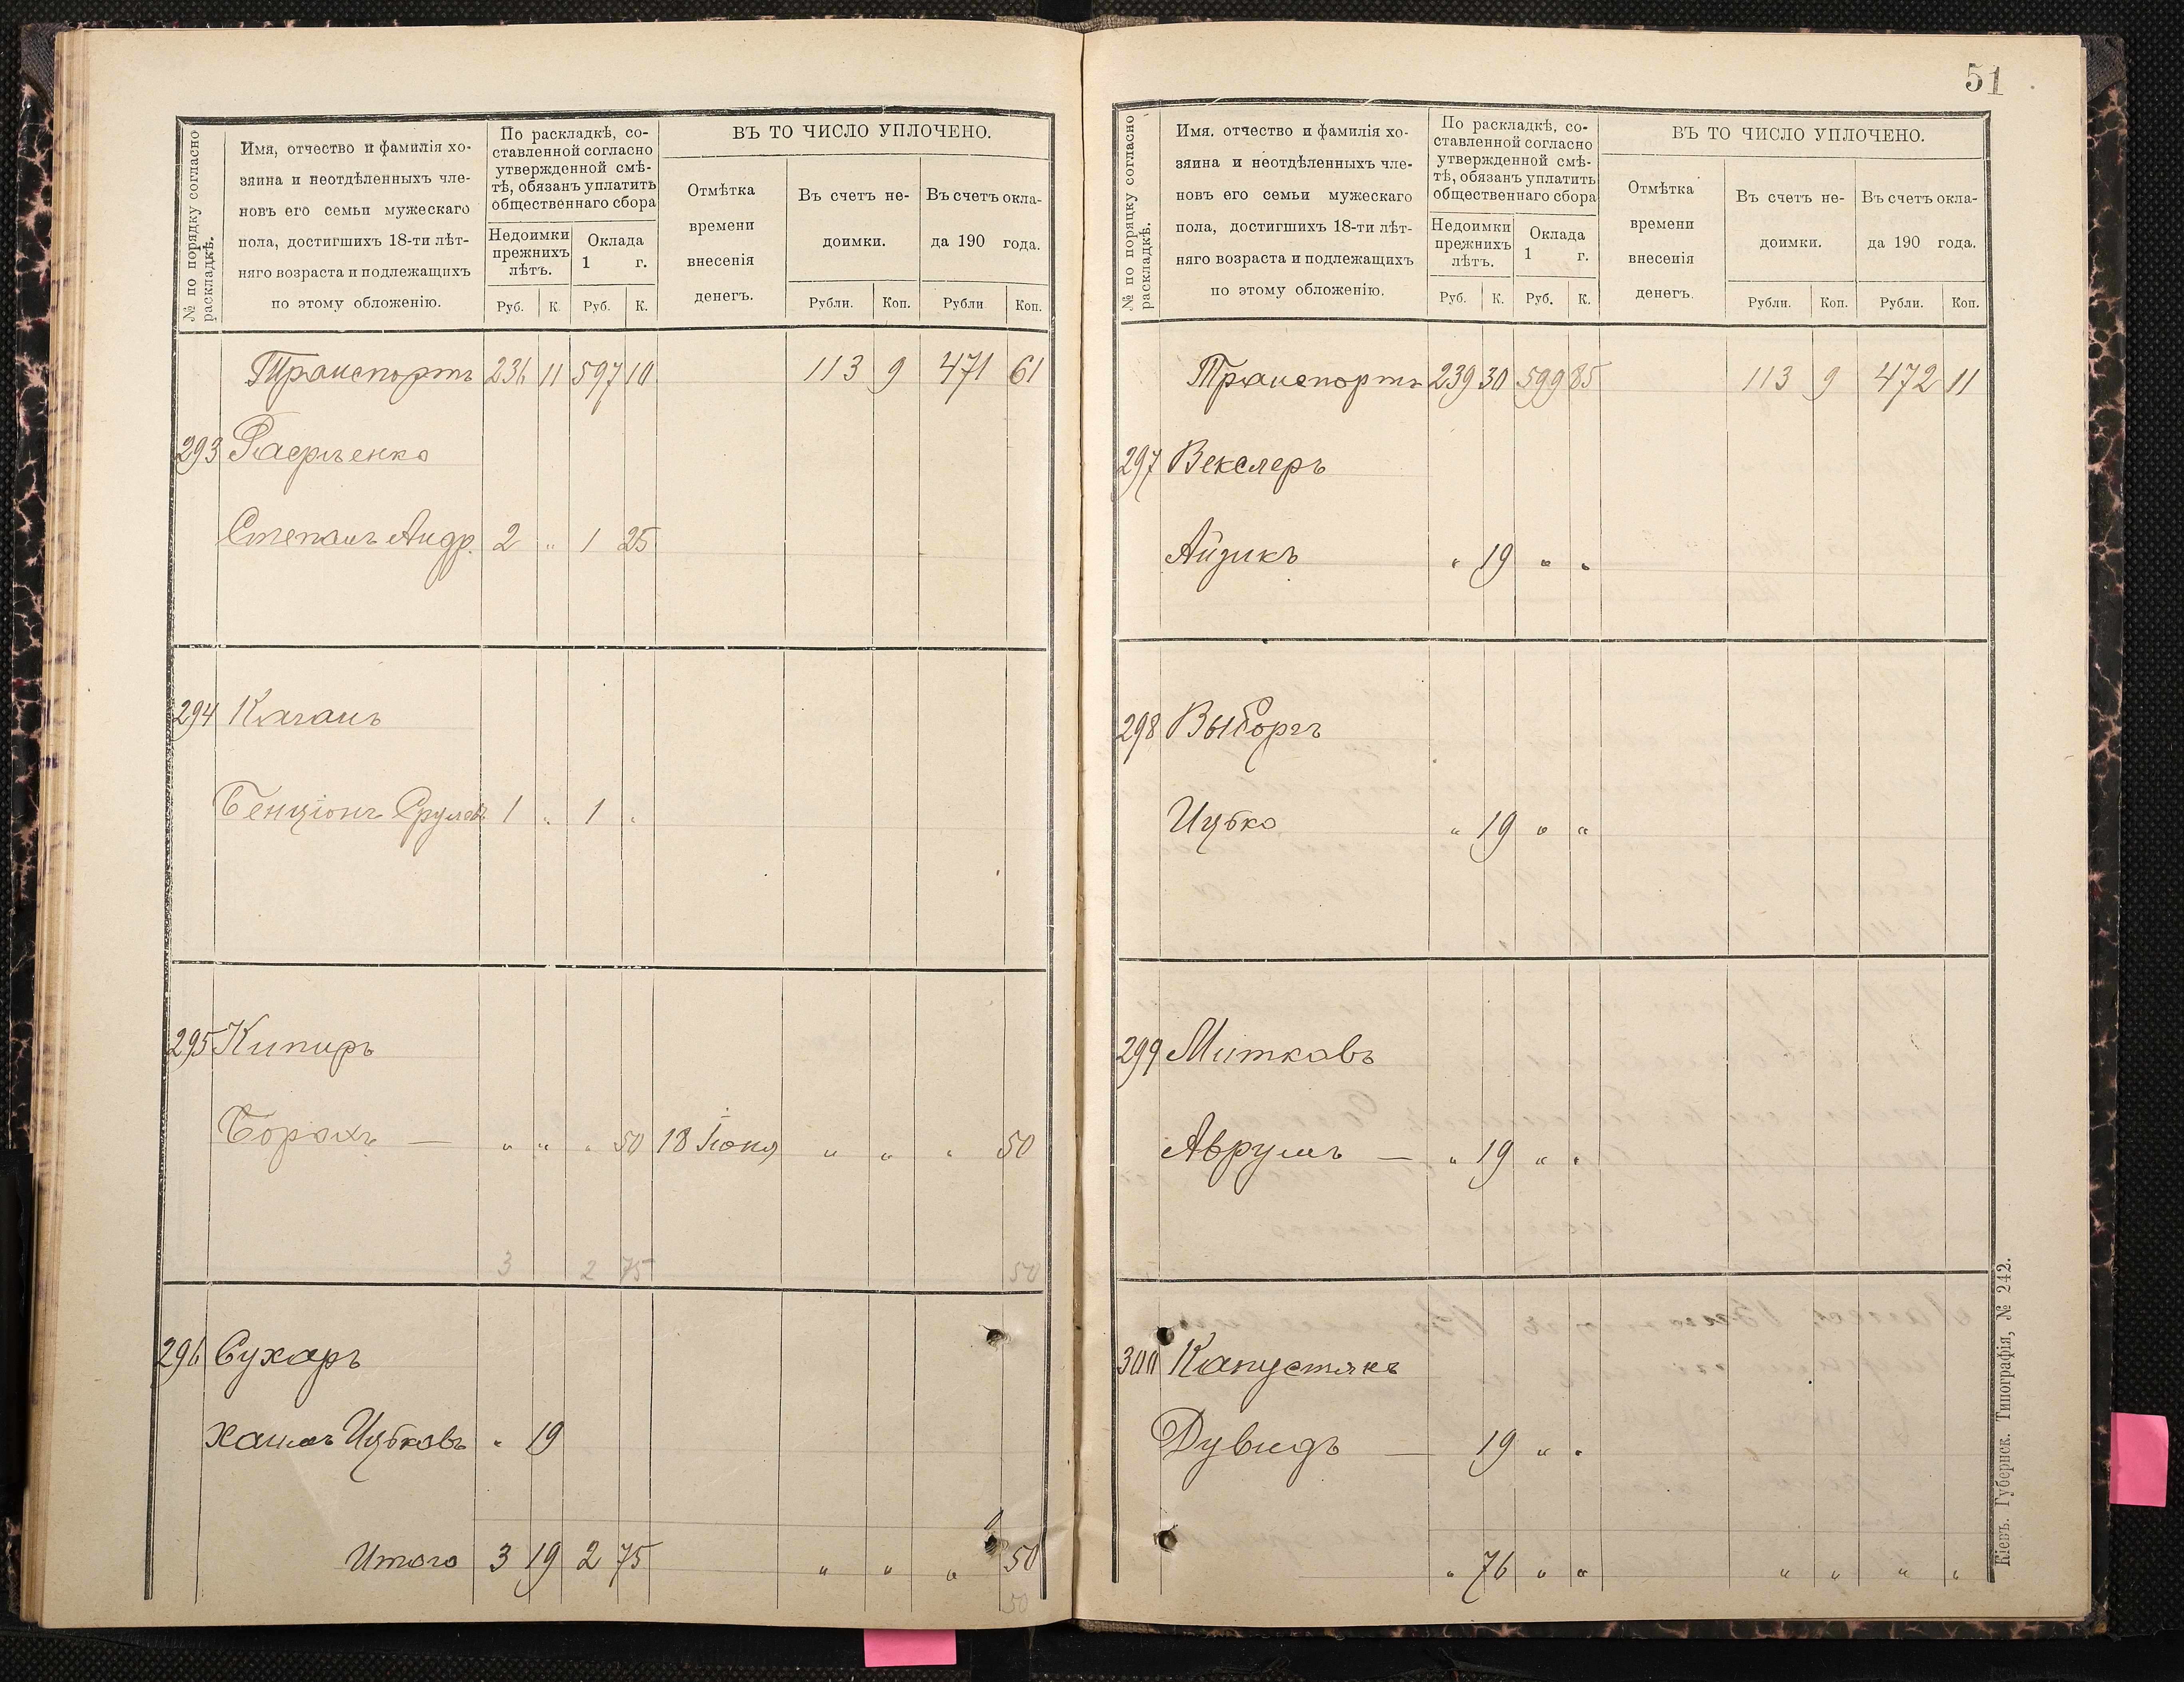 51
№ по порядку согласно раскладкѣ.
Имя, отчество и фамилія хо-
зяина и неотдѣленныхъ чле-
новъ его семьи мужескаго
пола, достигшихъ 18-ти лѣт-
няго возраста и подлежащихъ
по этому обложенію.
По раскладкѣ, со-
ставленной согласно
утвержденной смѣ-
тѣ, обязанъ уплатить
общественнаго сбора
Недоимки
прежнихъ
лѣтъ.
Оклада
1 г.
Руб. К. Руб. К.
ВЪ ТО ЧИСЛО УПЛОЧЕНО.
Отмѣтка
времени
внесенія
денегъ.
Въ счетъ не-
доимки.
Въ счетъ окла-
да 190 года.
Рубли. Коп. Рубли Коп.
Транспортъ 236 11 597 10 113 9 471 61
293
Степанъ Андр. 2 " 1 25
294 Каганъ
Бенціонъ Срулев. 1 " 1 "
295 Кипиръ
Борохъ — " " " 50 18 Іюня " " " 50
3 2 75 50
296 Сухаръ
Хаимъ Ицковъ " 19
Итого 3 19 2 75 " " " 50
50
№ по порядку согласно раскладкѣ.
Имя. отчество и фамилія хо-
зяина и неотдѣленныхъ чле-
новъ его семьи мужескаго
пола, достигшихъ 18-ти лѣт-
няго возраста и подлежащихъ
по этому обложенію.
По раскладкѣ, со-
ставленной согласно
утвержденной смѣ-
тѣ, обязанъ уплатить
общественнаго сбора
Недоимки
прежнихъ
лѣтъ.
Оклада
1 г.
Руб. К. Руб. К.
ВЪ ТО ЧИСЛО УПЛОЧЕНО.
Отмѣтка
времени
внесенія
денегъ.
Въ счетъ не-
доимки.
Въ счетъ окла-
да 190 года.
Рубли. Коп. Рубли. Коп.
Транспортъ 239 30 599 85 113 9 472 11
297 Векслеръ
Айзикъ " 19 " "
298 Выборгъ
Ицко " 19 " "
299 Митковъ
Аврумъ — " 19 " "
300 Капустякъ
Дувидъ — 19 " "
" 76 " " " " " "
Кіевъ. Губернск. Типографія, № 242.